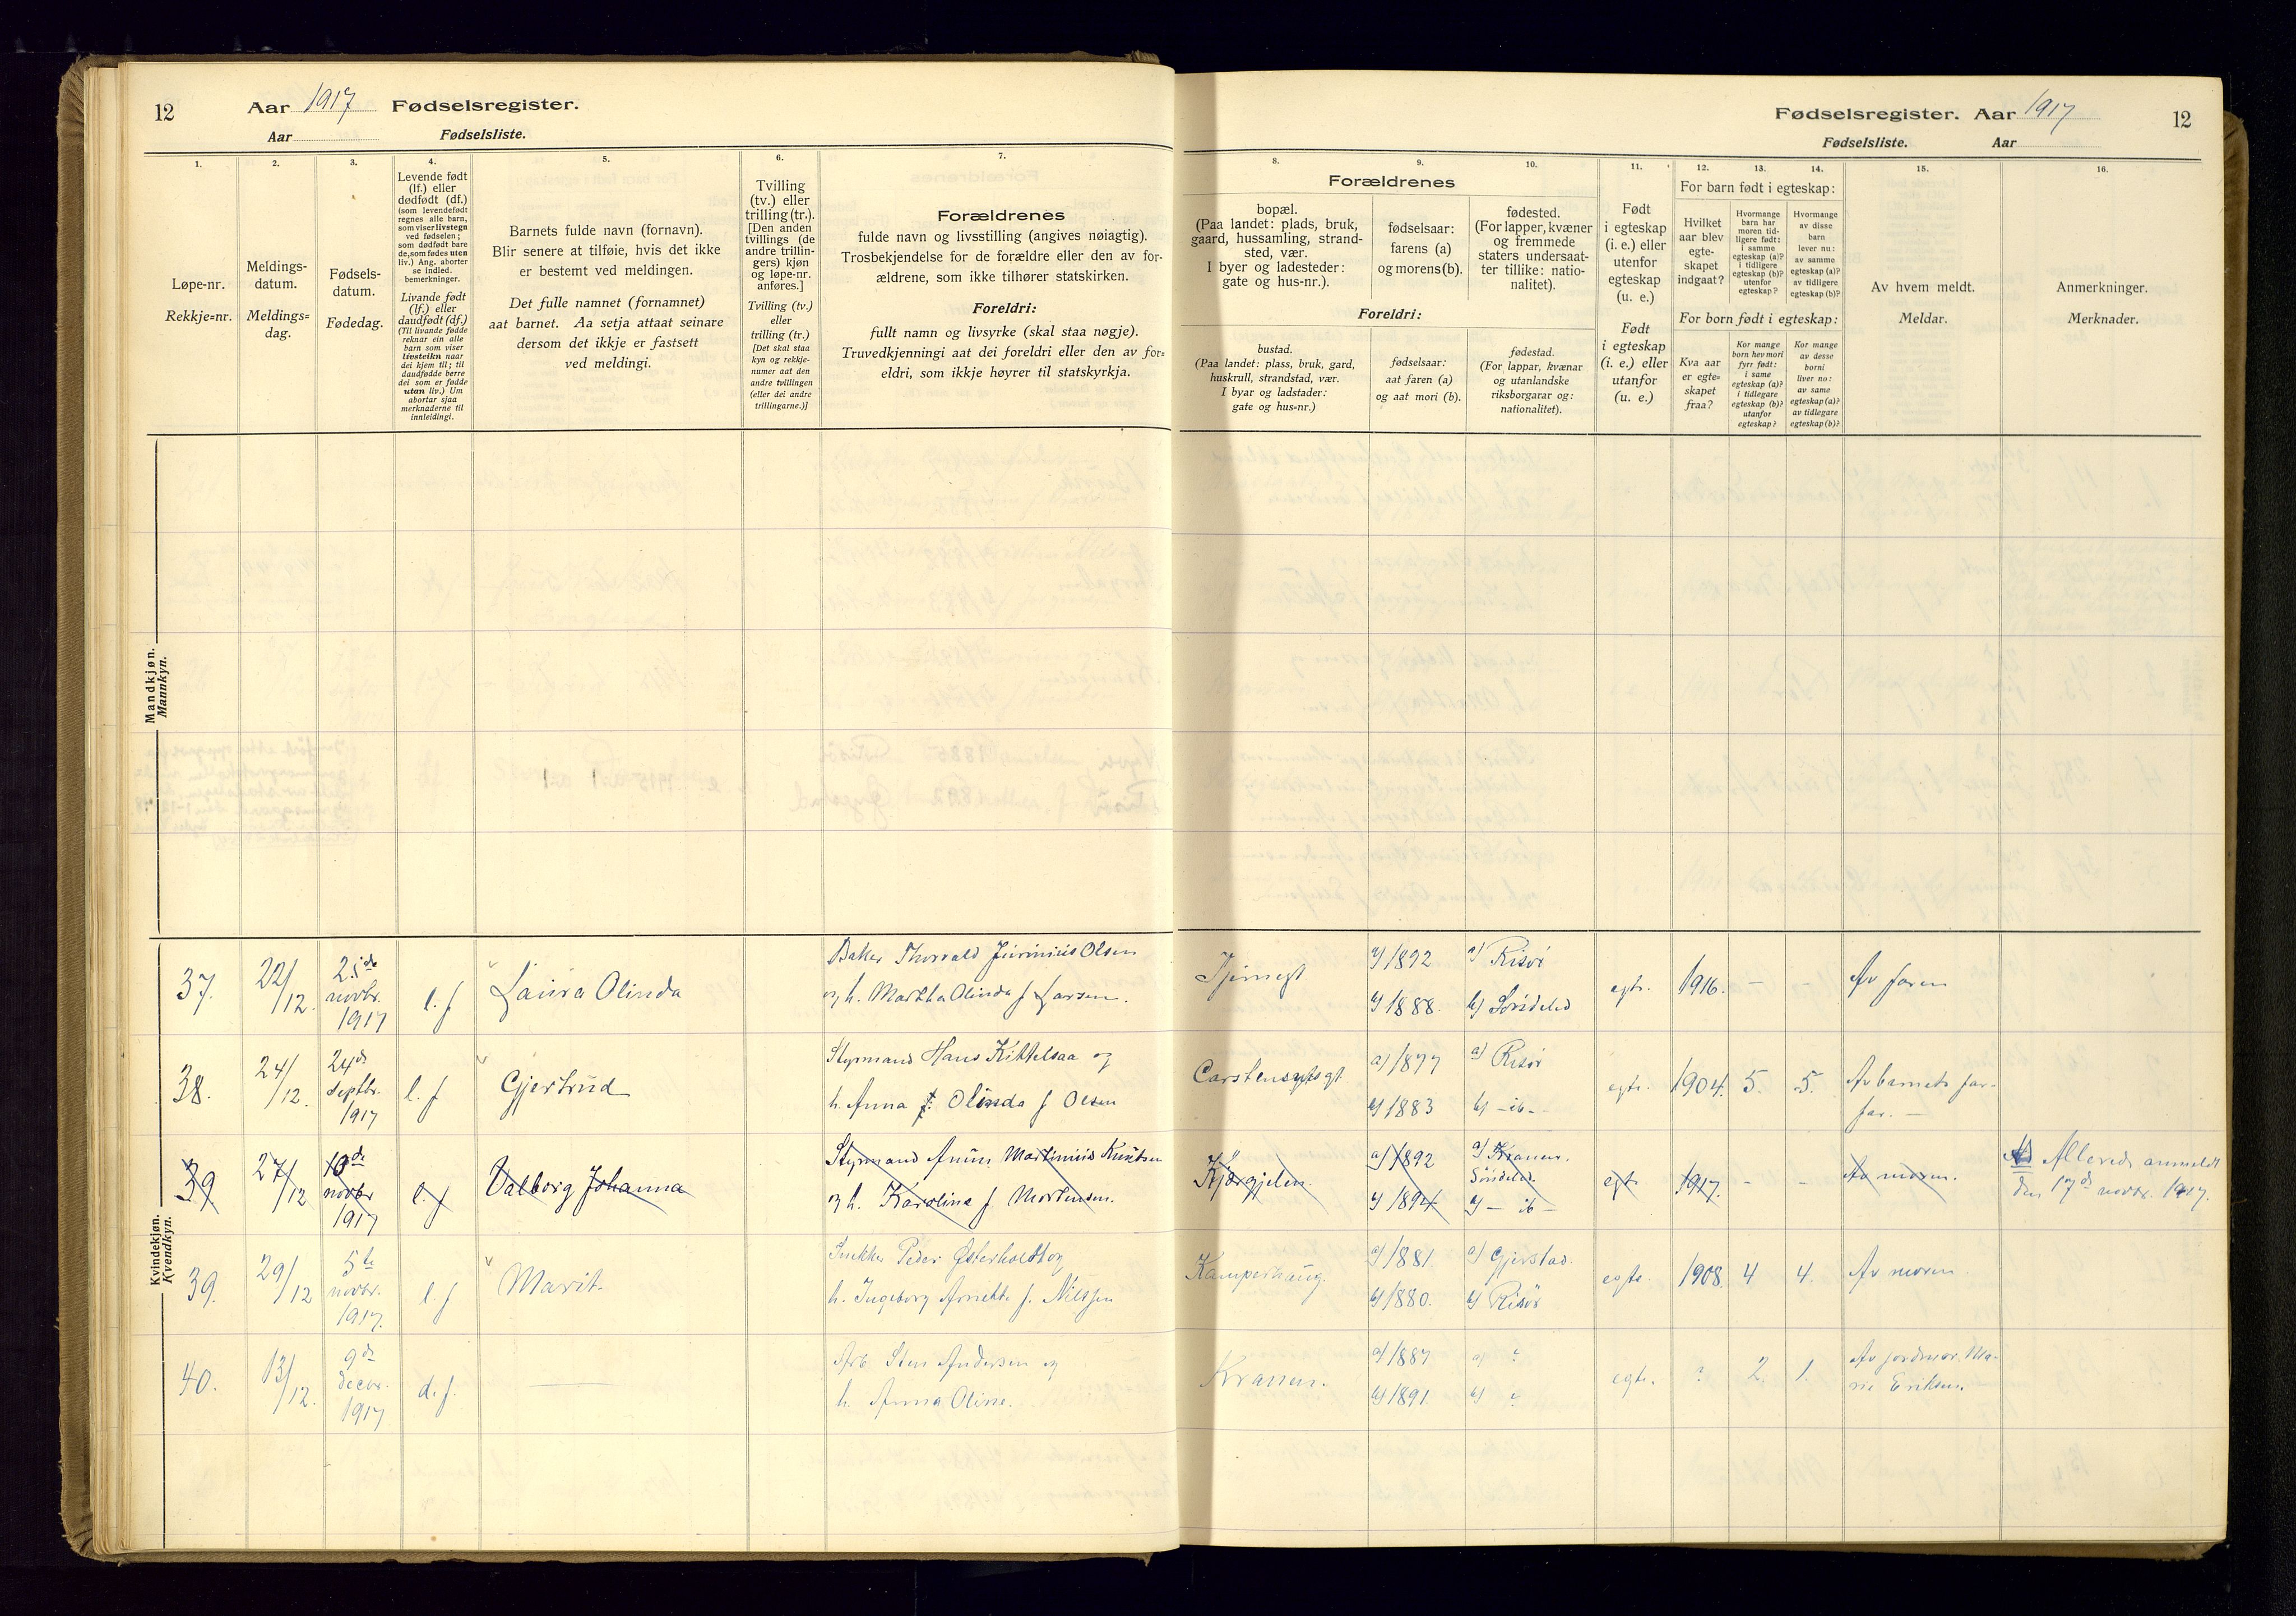 12 Aar 1917 Fødselsregister.
Aar Fødselsliste.
1.
Løpe-nr.
Rekkje=nr.
2.
Meldings-
datum.
Meldings=
dag.
3.
Fødsels-
datum.
Fødedag.
4.
Levende født
(lf.) eller
dødfødt (df.)
(som levendefødt
regnes alle barn,
som viser livstegn
ved fødselen;
som dødfødt bare
de, som fødes uten
liv.) Ang. aborter
se indled.
bemerkninger.
Livande født
(lf.) eller
daudfødt (df.)
(Til livande fødde
reknar ein alle
barn som viser
livsteikn naar
dei kjem til; til
daudfødde berre
dei som er fødde
utan liv.) Um
abortar sjaa
merknaderne til
innleidingi.
5.
Barnets fulde navn (fornavn).
Blir senere at tilføie, hvis det ikke
er bestemt ved meldingen.
Det fulle namnet (fornamnet)
aat barnet. Aa setja attaat seinare
dersom det ikkje er fastsett
ved meldingi.
6.
Tvilling
(tv.) eller
trilling (tr.).
[Den anden
tvillings (de
andre trillin-
gers) kjøn
og løpe-nr.
anføres.]
Tvilling (tv.)
eller
trilling (tr.)
[Det skal staa
kyn og rekkje-
numer aat den
andre tvillingen
(eller dei andre
trillingarne.)]
7.
Forældrenes
fulde navn og livsstilling (angives nøiagtig).
Trosbekjendelse for de forældre eller den av for-
ældrene, som ikke tilhører statskirken.
Foreldri:
fullt namn og livsyrke (skal staa nøgje).
Truvedkjenningi aat dei foreldri eller den av for=
eldri, som ikkje høyrer til statskyrkja.
Mandkjøn.
Mannkyn.
Kvindekjøn.
Kvendkyn.
Fødselsregister. Aar 1917 12
Fødselsliste. Aar
8. 9. 10.
Forældrenes
bopæl.
(Paa landet: plads, bruk,
gaard, hussamling, strand-
sted, vær.
I byer og ladesteder:
gate og hus-nr.).
fødselsaar:
farens (a)
og morens (b).
fødested.
(For lapper, kvæner
og fremmede
staters undersaat-
ter tillike: natio-
nalitet).
Foreldri:
bustad.
(Paa landet: plass, bruk, gard,
huskrull, strandstad, vær.
I byar og ladstader:
gate og hus=nr.)
fødselsaar:
aat faren (a)
og aat mori (b).
fødestad.
(For lappar, kvænar
og utanlandske
riksborgarar og:
nationalitet).
11.
Født
i egteskap
(i. e.) eller
utenfor
egteskap
(u. e.)
Født
i egteskap
(i. e.) eller
utanfor
(u. e.)
12. 13. 14.
For barn født i egteskap:
Hvilket
aar blev
egte-
skapet
indgaat?
Hvormange
barn har
moren tid-
ligere født:
i samme
egteskap (a)?
i tidligere
egteskap (b)?
utenfor
egteskap?
Hvormange
av disse
barn
lever nu:
av samme
egteskap (a)?
av tidligere
egteskap (b)?
For born født i egteskap:
Kva aar
er egte=
skapet
fraa?
Kor mange
born hev mori
fyrr født:
i same
egteskap (a)?
i tidlegare
egteskap (b)?
utanfor
egteskap?
Kor mange
av desse
borni
liver no:
av same
egteskap (a)?
av tidlegare
egteskap (b)?
15.
Av hvem meldt.
Meldar.
16.
Anmerkninger.
Merknader.
37. 22/12. novbr. 1917 l. f Laura Olinda
Baker Thorvald Olsen
og h. Martha Olinda f Larsen.
Tjernsgt a) 1892 b) 1888. a) Risør b) Søndeled egte. 1916. - - Av faren
38. 24/12. 24de septbr. 1917 l. f Gjertrud
Styrmand Hans Kittelsaa og
h. Anna Olinda f Olsen
a) 1877 b) 1883 a) Risør b) - ib - egte. 1904. 5. 5. Av barnets far-
far. -
39 27/12 10de novbr 1917 l. f Valborg Johanna
Styrmand Martinius Knutsen
og h. Karolina f Mortensen.
Kjærgjelen. a) 1892 b) 1894 a) Kranen. Søndeled. b) - ib - egt. 1917. - - Av moren. Allerede anmeldt
den 17de novbr. 1917.
39. 29/12 5te novbr. 1917. l. f Marit.
Snekker Peder Østerholdt og
h. Ingeborg f. Nilssen
Kamperhaug. a) 1881. b) 1880. a) Gjerstad. b) Risør egte. 1908. 4 4. Av moren
40. 13/12. 9de decbr. 1917 d. f.
Arb. Sten Andersen og
h. Anna Oline.
Kranen. a) 1887 b) 1891. a) ? b) ? egte. ? 2. 1. Av jordmor. Ma-
rie Eriksen.